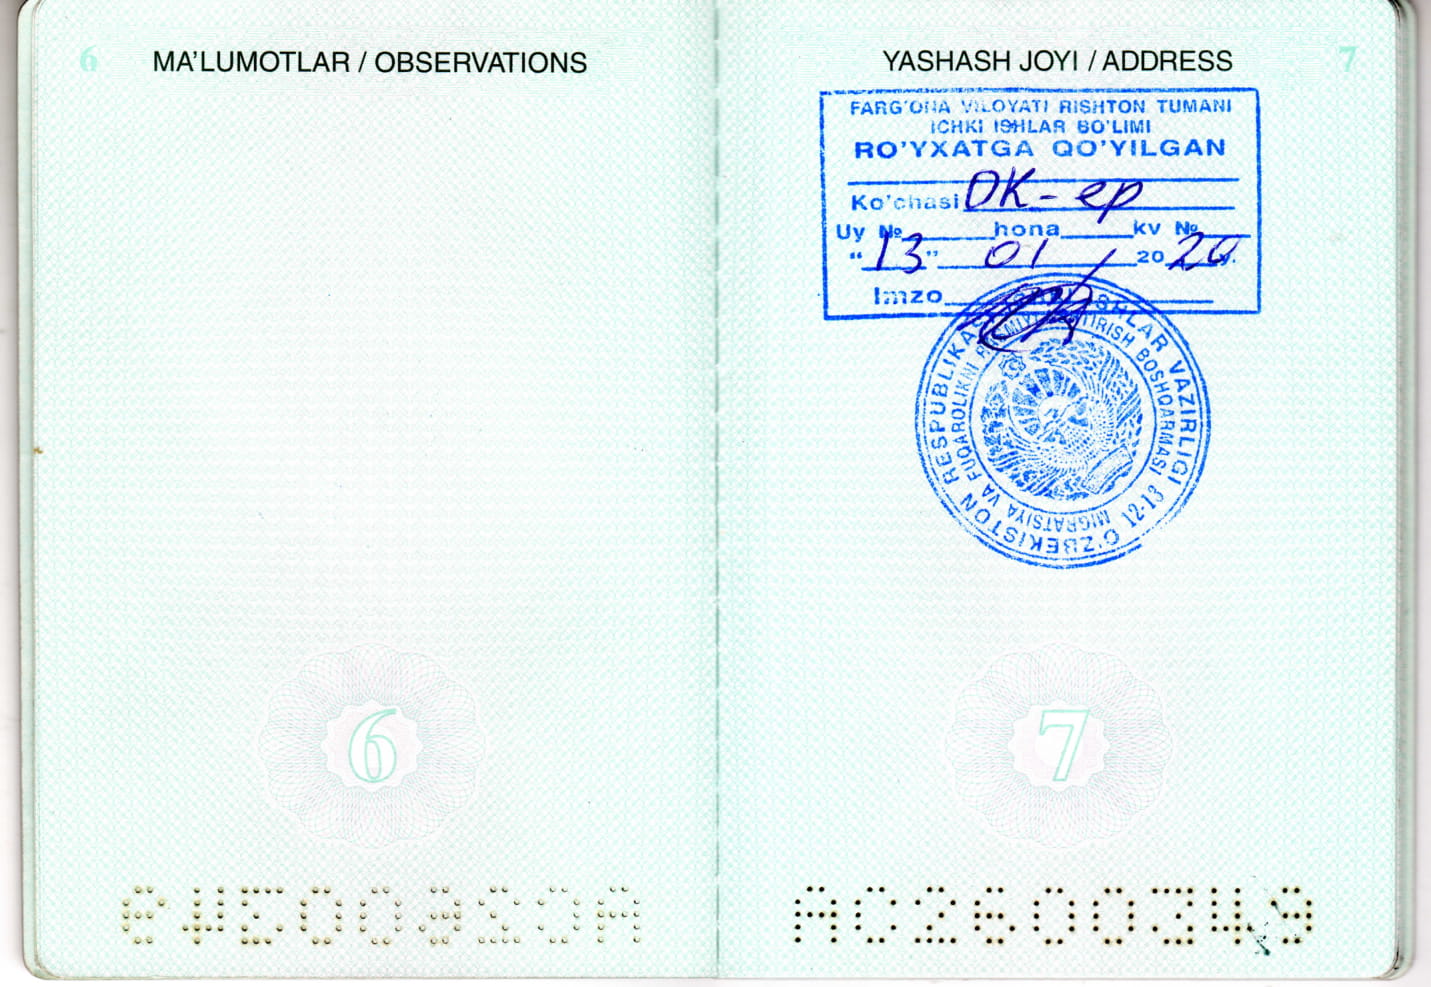 6
MA'LUMOTLAR / OBSERVATIONS
6
YASHASH JOYI / ADDRESS
7
FARG'ONA VILOYATI RISHTON TUMANI
ICHKI ISHLAR BO'LIMI
RO'YXATGA QO'YILGAN
Ko'chasi OK-ер
Uy № hona kv №
"13" 01 2020 y.
Imzo
O'ZBEKISTON RESPUBLIKASI ICHKI ISHLAR VAZIRLIGI 12-13
MIGRATSIYA VA FUQAROLIKNI RASMIYLASHTIRISH BOSHQARMASI
7
AC2600349